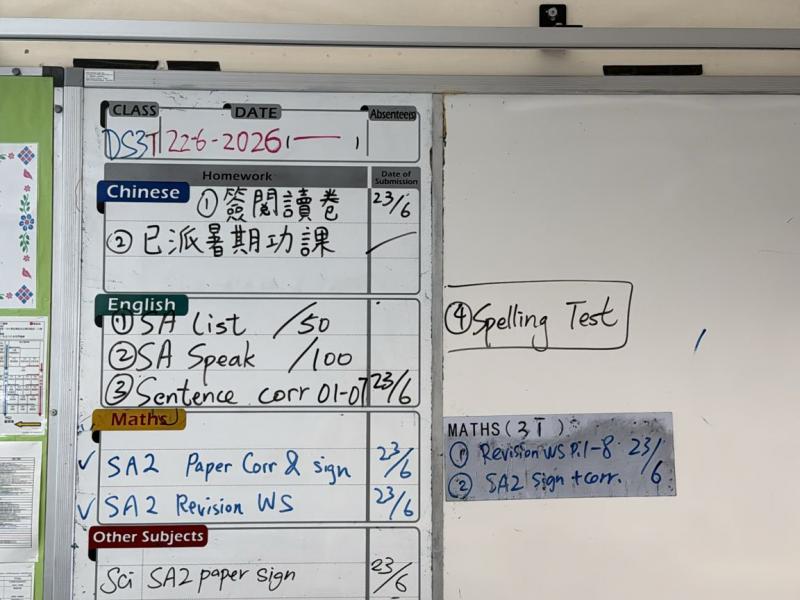 CLASS DATE Absentee(s)
DS3T 22-6-2026 ( — )
Homework Date of Submission
Chinese ① 簽閱讀卷 23/6
② 已派暑期功課
English
① SA List /50
② SA Speak /100
③ Sentence corr 01-07 23/6
Maths
✓ SA2 Paper Corr & sign 23/6
✓ SA2 Revision WS 23/6
Other Subjects
Sci SA2 paper sign 23/6
④ Spelling Test
MATHS(3T)
① Revision WS P.1-8 23/6
② SA2 Sign + corr.